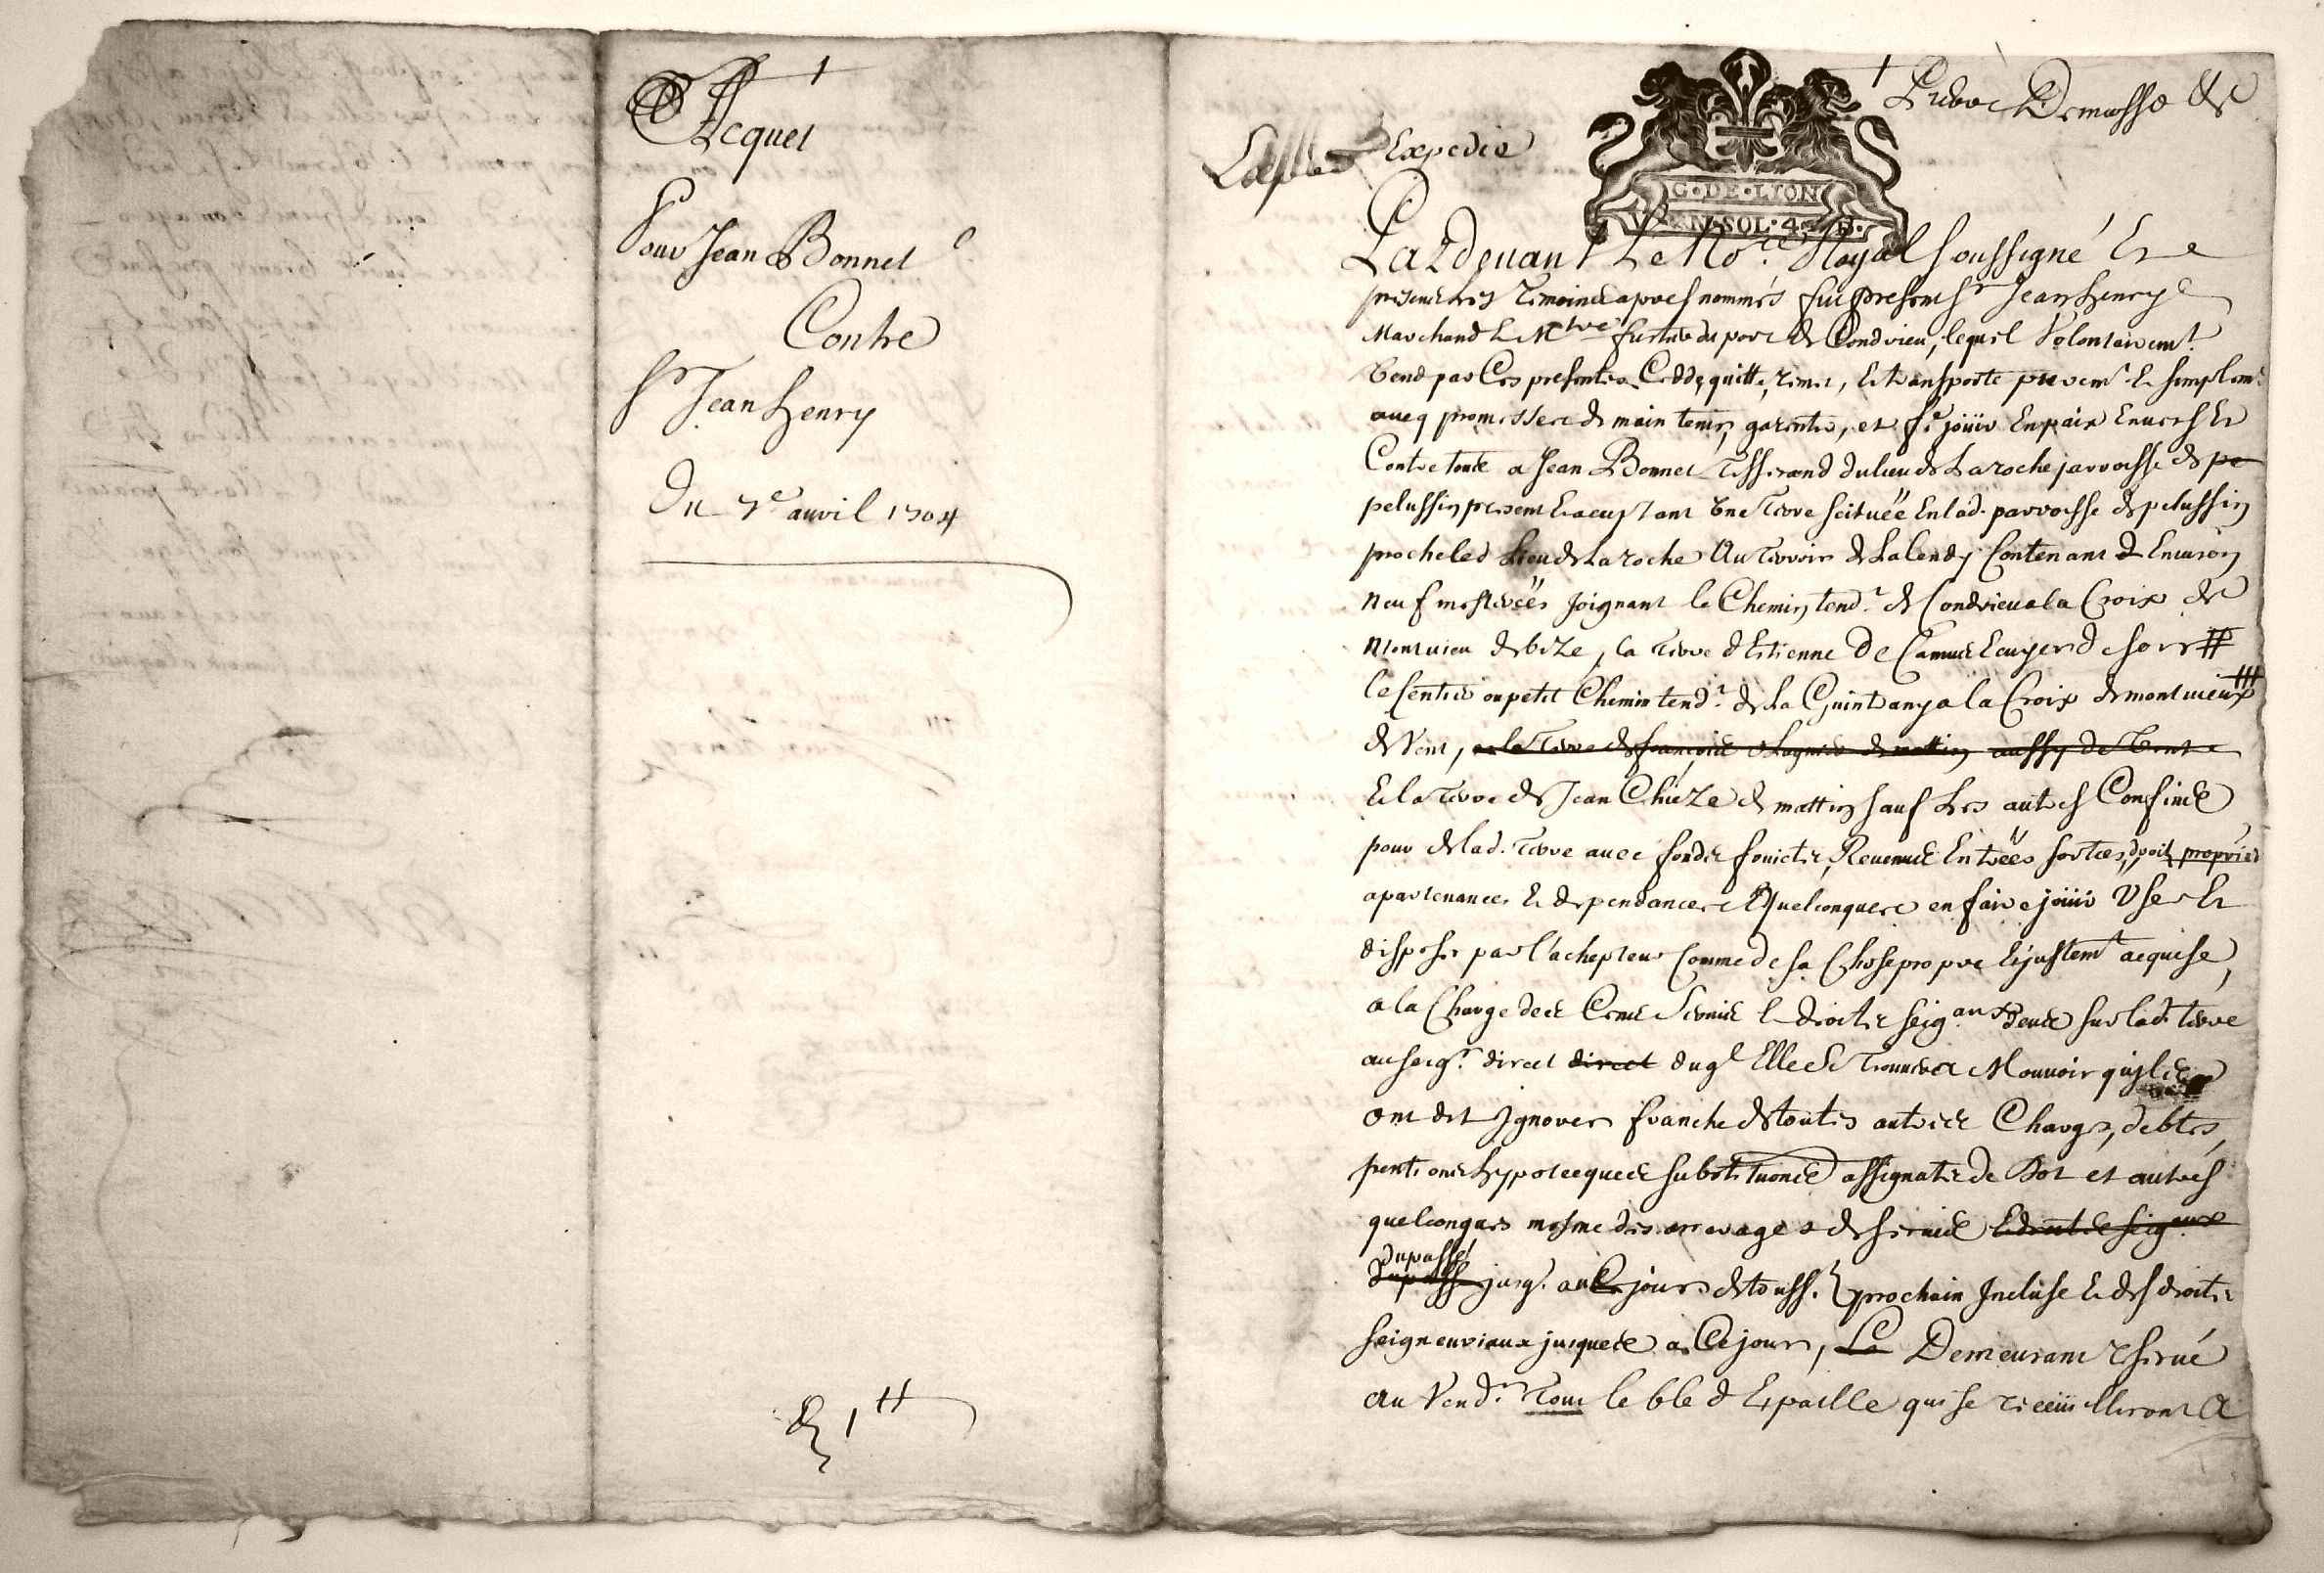 Acquet
Pour Jean Bonnet
Contre
Sr Jean Henry
Du 7e auril 1704
1 ₶
Expedié
G·DE·LION
VN·SOL·4·D·
Pardeuant Le No.re Royal soussigné Et
presents les Temoins apres nommés fut present Sr Jean Henry
Marchand & Mtre du port de Condrieu, lequel Volontairemt
Vend par Ces presentes Cedde, quitte, remet, & transporte puremt & simplemt
aueq promesses de maintenir, garentir, et fe jöuir En paix Enuers Et
Contre tous a Jean Bonnet Tisserand du lieu de La roche parroisse de pe
pelussin present & aceptant Vne Terre scituée En lad. parroisse de pelussin
proche led Lieu de La roche Au Terroir de Contenant d Enuiron
neuf mesterées Joignant le Chemin tend.t de Condrieu a la Croix de
montuieu de bize, la Terre d'Estienne De Camus Ecuyer de soir #
le sentier ou petit Chemin tend.t de La a la Croix de montuieux
de Vent, la Terre de françois de mattin aussy de Vent
& la Terre de Jean Chieze de mattin sauf Les autres Confins
pour de lad. Terre auec fonds fruicts, Reuenus Entrées sorties, droits, proprietes
apartenances & dependances Quelconques en faire jöuir Vser Et
disposer par l'achepteur Comme de sa Chose propre & justemt acquise,
a la Charge des Cens Seruis & droits seig.aux deus sur lad. terre
au seigr. direct direct duql Elle se Trouuera Mouuoir qu'ils
ont dit Ignorer franche de toutes autres Charges, debtes,
pentions hypotecques substitutions assignats de Dot et autres
quelconques mesme des arrerages de seruis & droits seigaux
du passé
du passé jusq. au Ce jour de touss. prochain Incluse & des droits
seigneuriaux jusques a Ce jour, La Demeurant reserué
au Vendr. Tout le bled & paille qui se receuilliront a